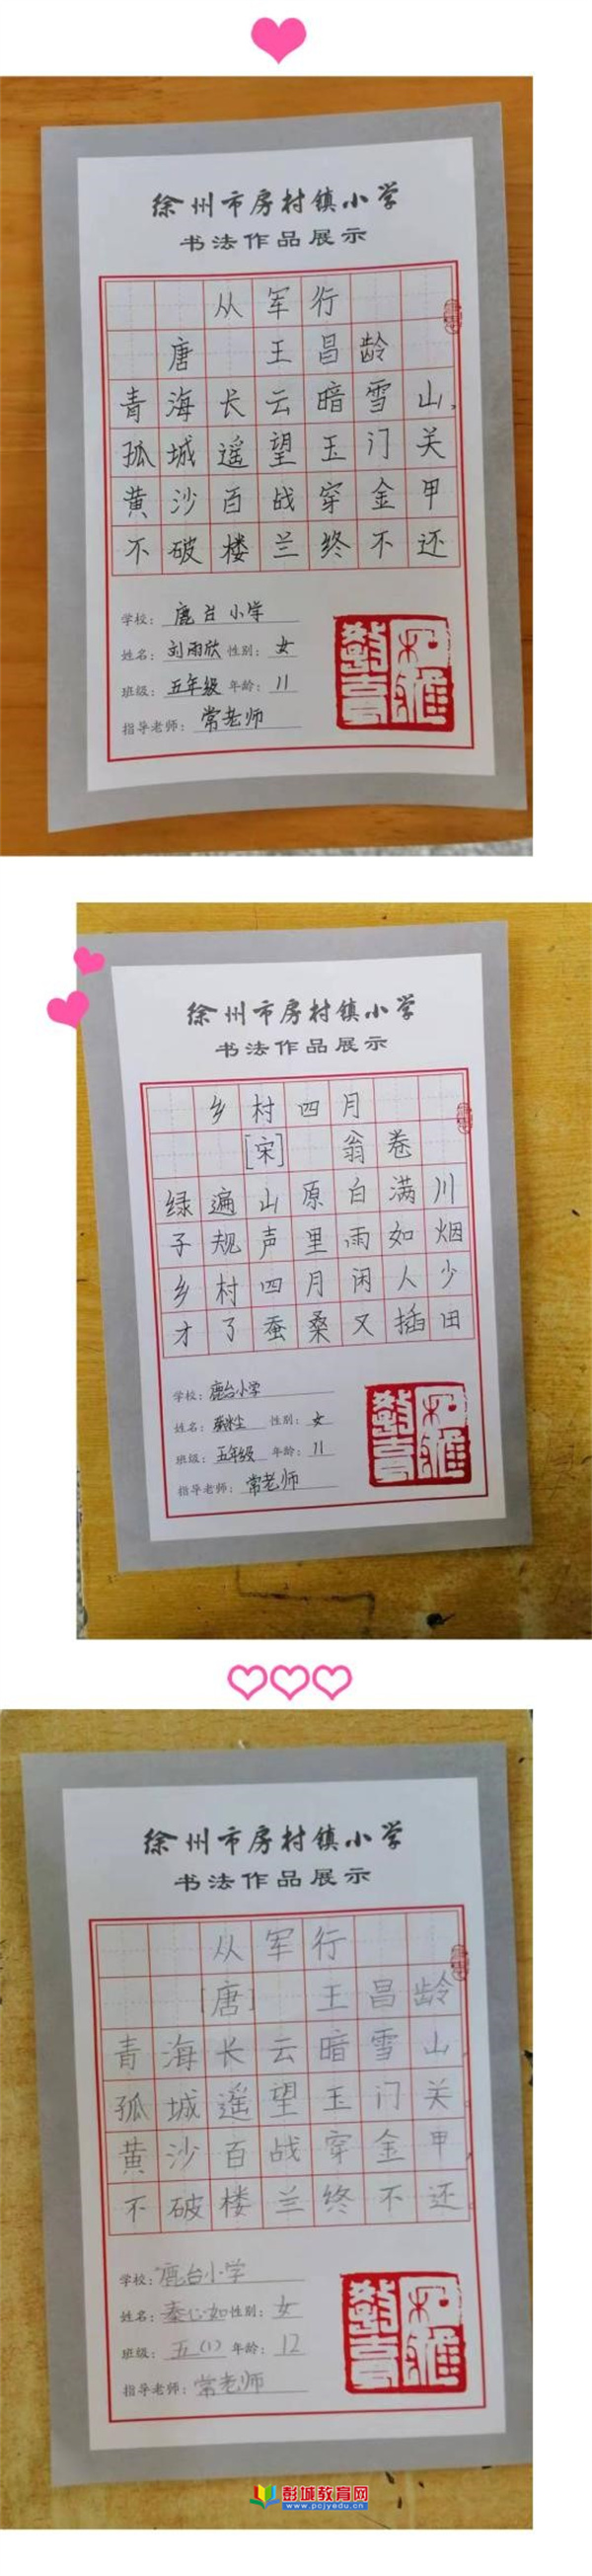 徐州市房村镇小学
书法作品展示
从军行
唐 王昌龄
青海长云暗雪山,
孤城遥望玉门关
黄沙百战穿金甲
不破楼兰终不还
学校: 鹿台小学
姓名: 刘雨欣 性别: 女
班级: 五年级 年龄: 11
指导老师: 常老师
徐州市房村镇小学
书法作品展示
乡村四月
[宋] 翁卷
绿遍山原白满川
子规声里雨如烟
乡村四月闲人少
才了蚕桑又插田
学校: 鹿台小学
姓名: 性别: 女
班级: 五年级 年龄: 11
指导老师: 常老师
徐州市房村镇小学
书法作品展示
从军行
[唐] 王昌龄
青海长云暗雪山,
孤城遥望玉门关。
黄沙百战穿金甲,
不破楼兰终不还。
学校: 鹿台小学
姓名: 秦心如 性别: 女
班级: 五(1) 年龄: 12
指导老师: 常老师
彭城教育网
www.pcjyedu.cn